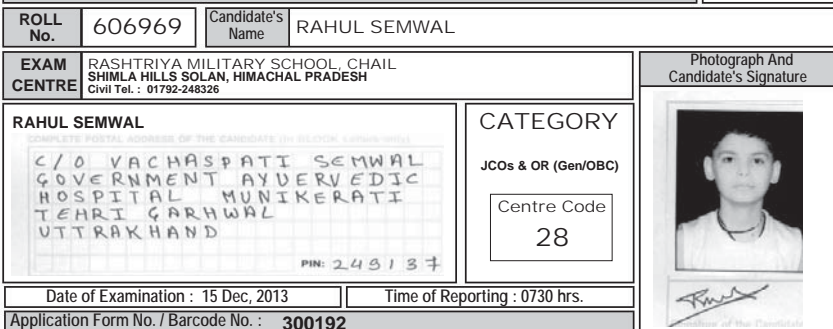 ROLL No. 606969 Candidate's Name RAHUL SEMWAL
EXAM CENTRE
RASHTRIYA MILITARY SCHOOL, CHAIL
SHIMLA HILLS SOLAN, HIMACHAL PRADESH
Civil Tel. : 01792-248326
Photograph And
Candidate's Signature
RAHUL SEMWAL
COMPLETE POSTAL ADDRESS OF THE CANDIDATE (in BLOCK Letters only)
C/O VACHASPATI SEMWAL
GOVERNMENT AYUERVEDIC
HOSPITAL MUNIKERATI
TEHRI GARHWAL
UTTRAKHAND
PIN: 249137
CATEGORY
JCOs & OR (Gen/OBC)
Centre Code
28
Date of Examination : 15 Dec, 2013
Time of Reporting : 0730 hrs.
Application Form No. / Barcode No. : 300192
Signature of the Candidate